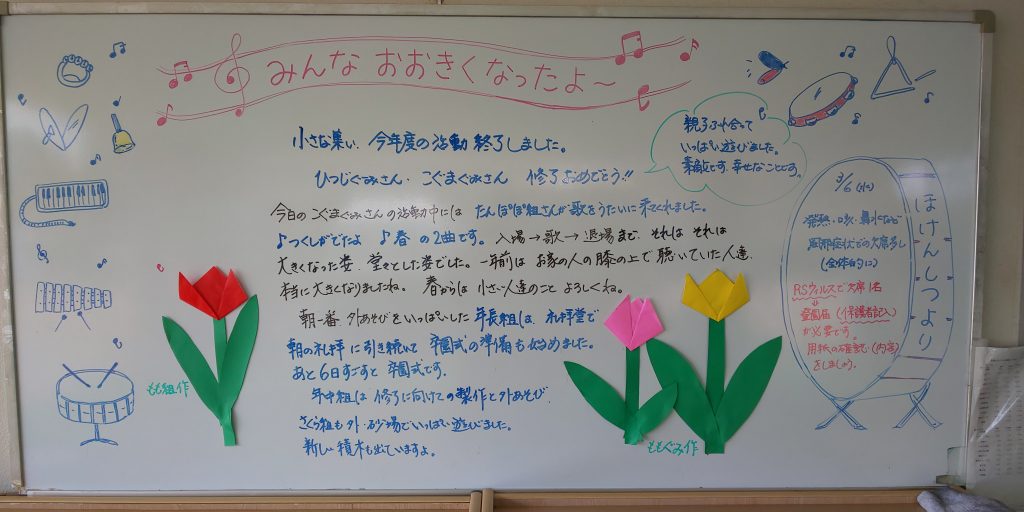 みんな おおきくなったよ～
小さな集い、今年度の活動終了しました。
ひつじぐみさん・こぐまぐみさん 修了おめでとう!!
親子ふれ合って
いっぱい遊びました。
素敵です。幸せなことです。
今日のこぐまぐみさんの活動中には たんぽぽ組さんが歌をうたいに来てくれました。
♪つくしがでたよ ♪春 の2曲です。 入場→歌→退場まで、それは それは
大きくなった姿、堂々とした姿でした。一年前は お家の人の膝の上で 聴いていた人達、
本当に大きくなりましたね。 春からは 小さい人達のこと よろしくね。
朝一番 外あそびをいっぱいした 年長組は、礼拝堂で
朝の礼拝に引き続いて 卒園式の準備も始めました。
あと6日すごすと 卒園式です。
年中組は 修了に向けての製作と外あそび、
さくら組も外・砂場でいっぱい遊びました。
新しい積木も出ていますよ。
もも組作
ももぐみ作
ほけんしつより
3/6(水)
発熱・咳・鼻水など
風邪症状での欠席多し
(全体的に)
RSウィルスで欠席1名
登園届(保護者記入)
が必要です。
用紙の確認(内容)
をしましょう。